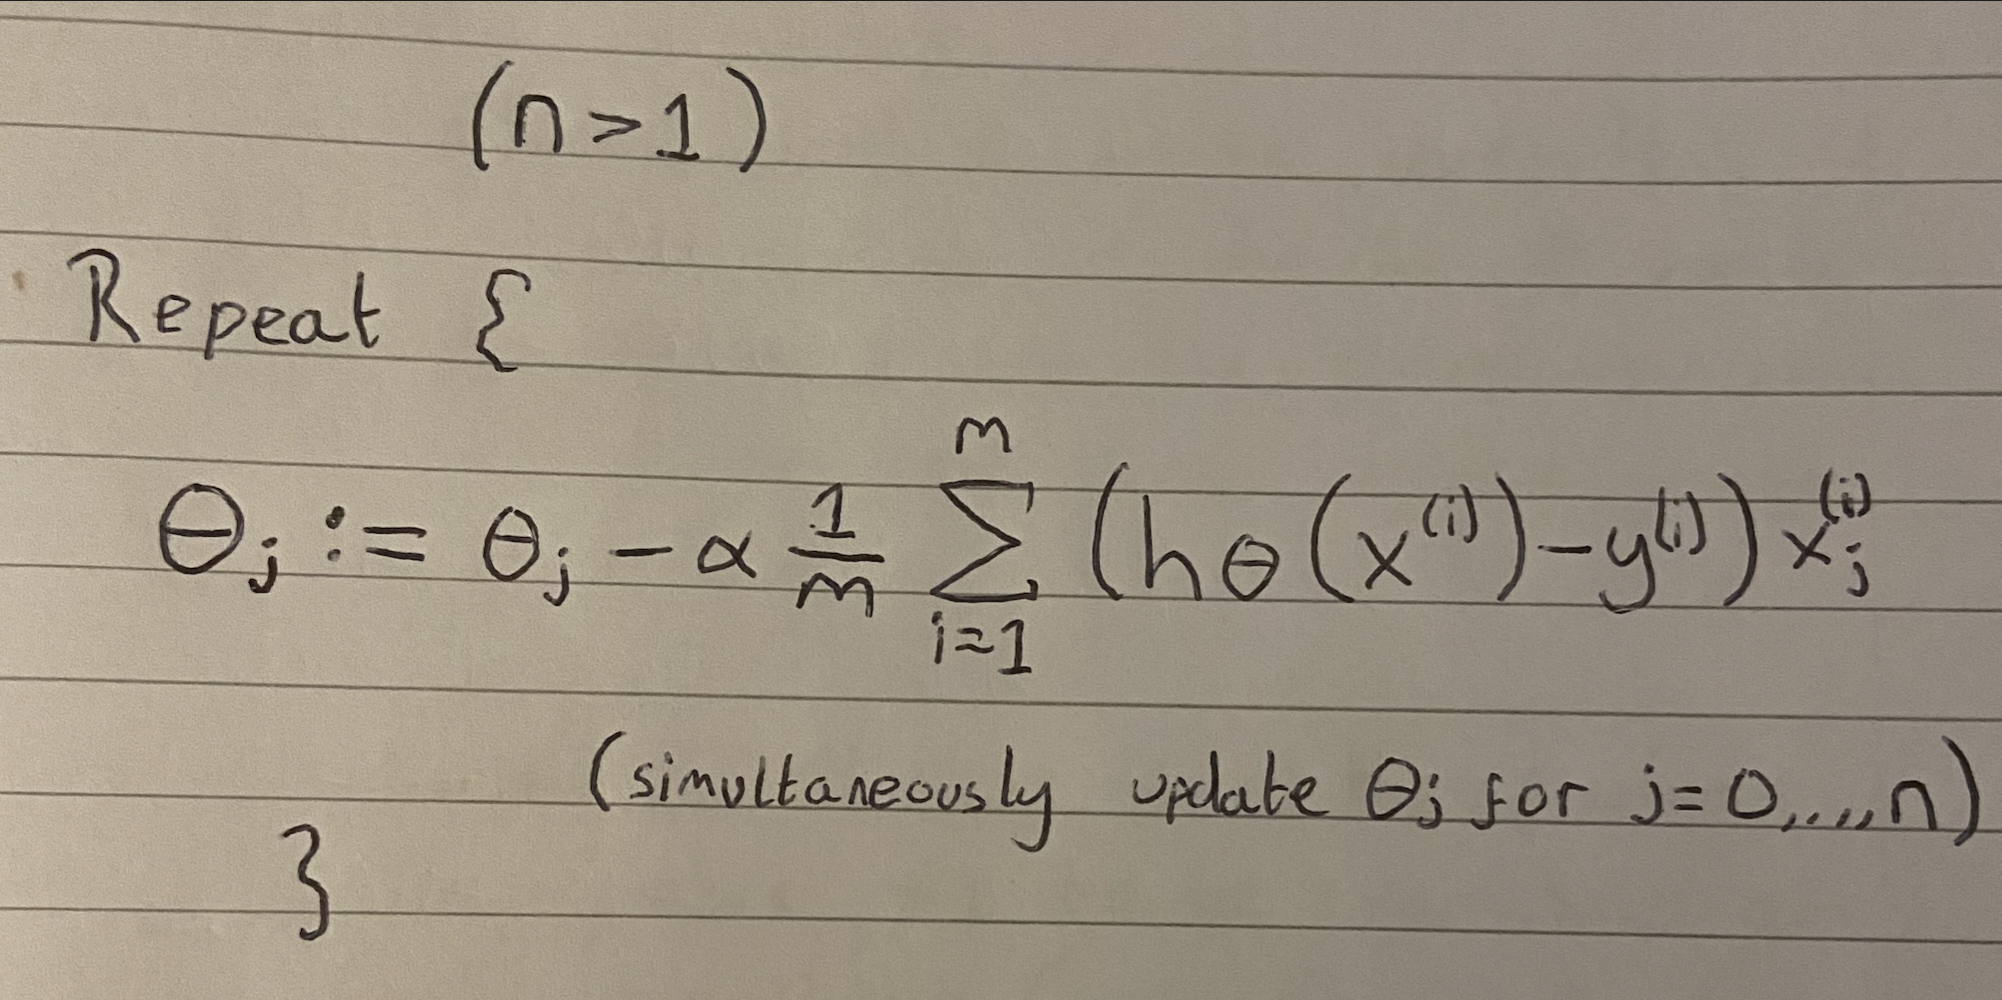 (n>1)
Repeat {
θj := θj - α 1/m ∑_{i=1}^{m} (hθ(x^(i)) - y^(i)) xj^(i)
(simultaneously update θj for j=0,...,n)
}